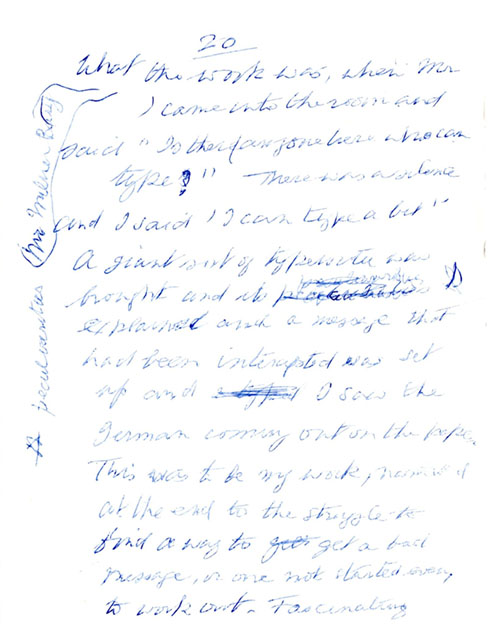 20
What the work was, when Mr
I came into the room and
said "Is there anyone here who can
type?" There was a silence
and I said "I can type a bit"
A giant sort of typewriter was
brought and its
explained and a message that
had been interupted was set
up and I saw the
German coming out on the paper.
This was to be my work,
at the end to the struggle to
find a way to get a bad
message, or one not started
to work out. Fascinating
peculiarities
Mr Milner Barry